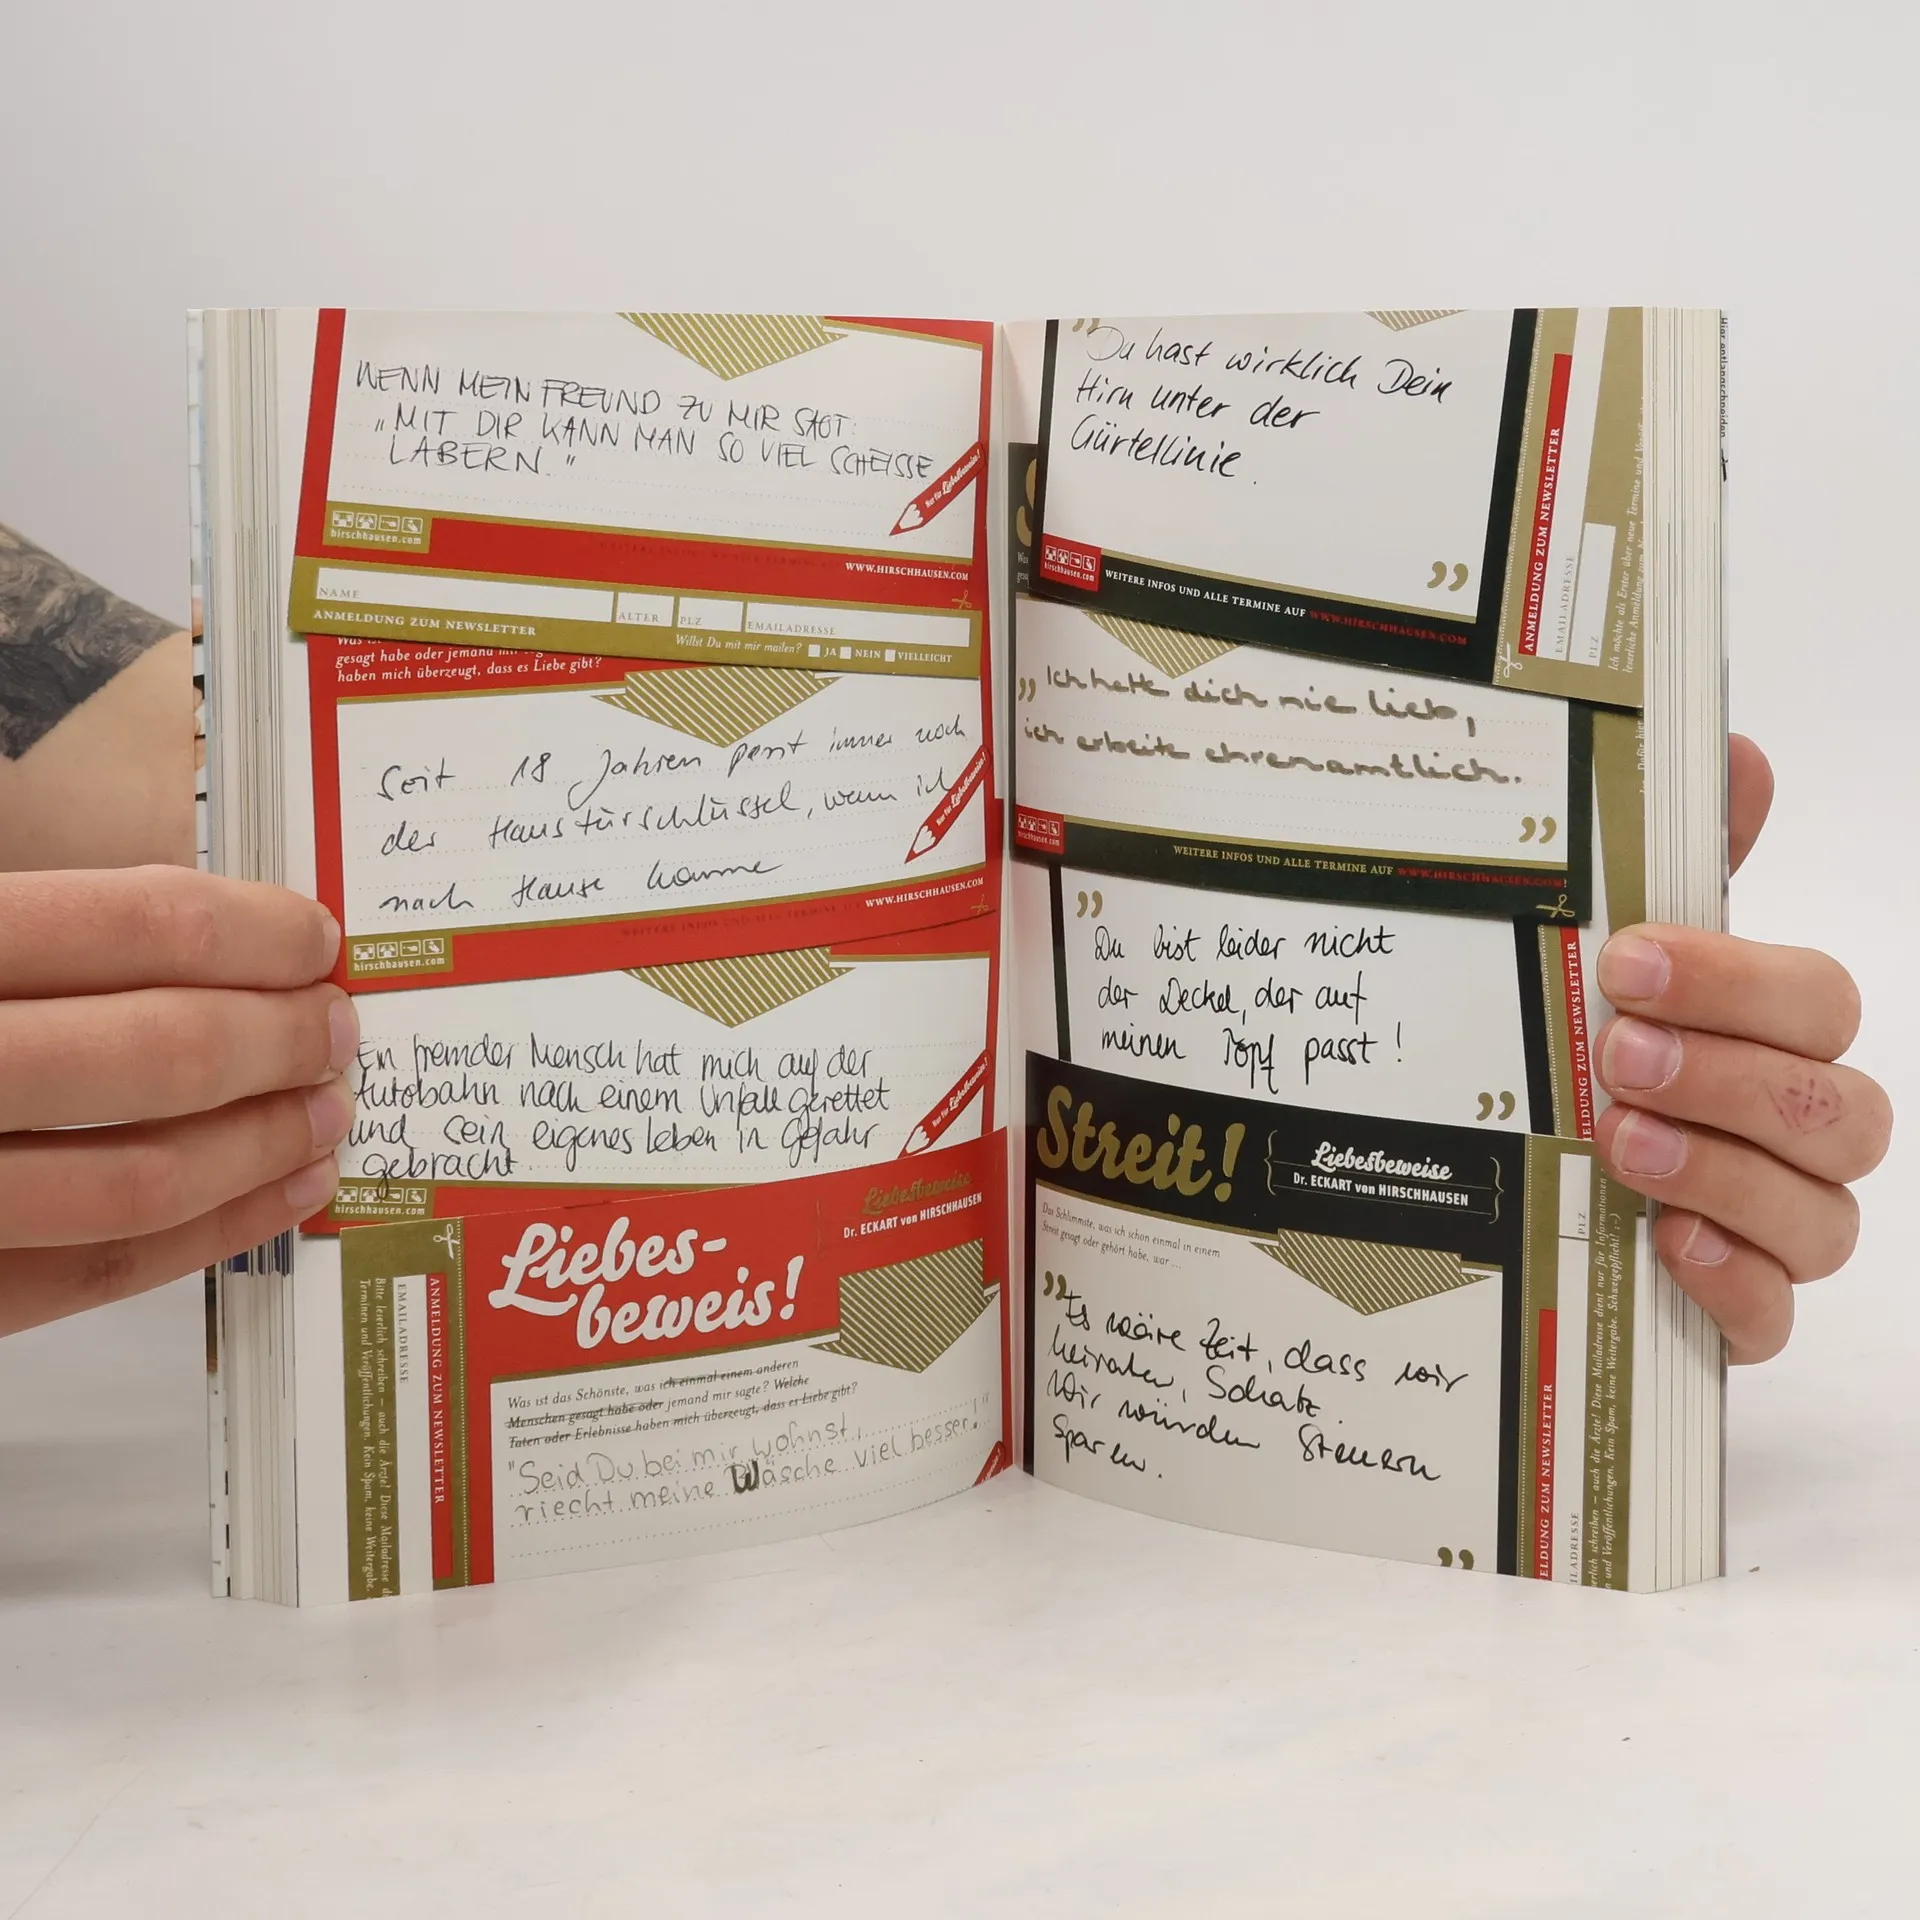 WENN MEIN FREUND ZU MIR SAGT:
„MIT DIR KANN MAN SO VIEL SCHEISSE
LABERN."
Nur für Liebesbeweise!
hirschhausen.com
WWW.HIRSCHHAUSEN.COM
NAME
ALTER
PLZ
EMAILADRESSE
ANMELDUNG ZUM NEWSLETTER
Willst Du mit mir mailen? JA NEIN VIELLEICHT
gesagt habe oder jemand mir
haben mich überzeugt, dass es Liebe gibt?
Seit 18 Jahren passt immer noch
der Haustürschlüssel, wenn ich
nach Hause komme
Nur für Liebesbeweise!
WWW.HIRSCHHAUSEN.COM
hirschhausen.com
Ein fremder Mensch hat mich auf der
Autobahn nach einem Unfall gerettet
und sein eigenes Leben in Gefahr
gebracht.
Nur für Liebesbeweise!
hirschhausen.com
Liebesbeweise
Dr. ECKART von HIRSCHHAUSEN
Liebes-
beweis!
Was ist das Schönste, was ich einmal einem anderen
Menschen gesagt habe oder jemand mir sagte? Welche
Taten oder Erlebnisse haben mich überzeugt, dass es Liebe gibt?
"Seid Du bei mir wohnst,
riecht meine Wäsche viel besser!"
ANMELDUNG ZUM NEWSLETTER
EMAILADRESSE
Bitte leserlich schreiben – auch die Ärzte! Diese Mailadresse
Terminen und Veröffentlichungen. Kein Spam, keine Weitergabe.
„Du hast wirklich Dein
Hirn unter der
Gürtellinie.
”
hirschhausen.com
WEITERE INFOS UND ALLE TERMINE AUF WWW.HIRSCHHAUSEN.COM
ANMELDUNG ZUM NEWSLETTER
EMAILADRESSE
PLZ
Ich möchte als Erster über neue Termine und
leserliche Anmeldung zum
” Ich hatte dich nie lieb,
ich arbeite ehrenamtlich.
”
hirschhausen.com
WEITERE INFOS UND ALLE TERMINE AUF WWW.HIRSCHHAUSEN.COM!
”
Du bist leider nicht
der Deckel, der auf
meinen Topf passt!
”
ELDUNG ZUM NEWSLETTER
Streit!
Liebesbeweise
Dr. ECKART von HIRSCHHAUSEN
Das Schlimmste, was ich schon einmal in einem
Streit gesagt oder gehört habe, war ...
” Es wäre Zeit, dass wir
heiraten, Schatz.
Wir würden Steuern
sparen.
”
PLZ
ELDUNG ZUM NEWSLETTER
ILADRESSE
erlich schreiben – auch die Ärzte! Diese Mailadresse dient nur für Informationen
n und Veröffentlichungen. Kein Spam, keine Weitergabe. Schweigepflicht! ;-)